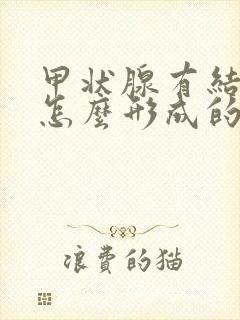 甲状腺有結
怎麼形成的
浪費的猫